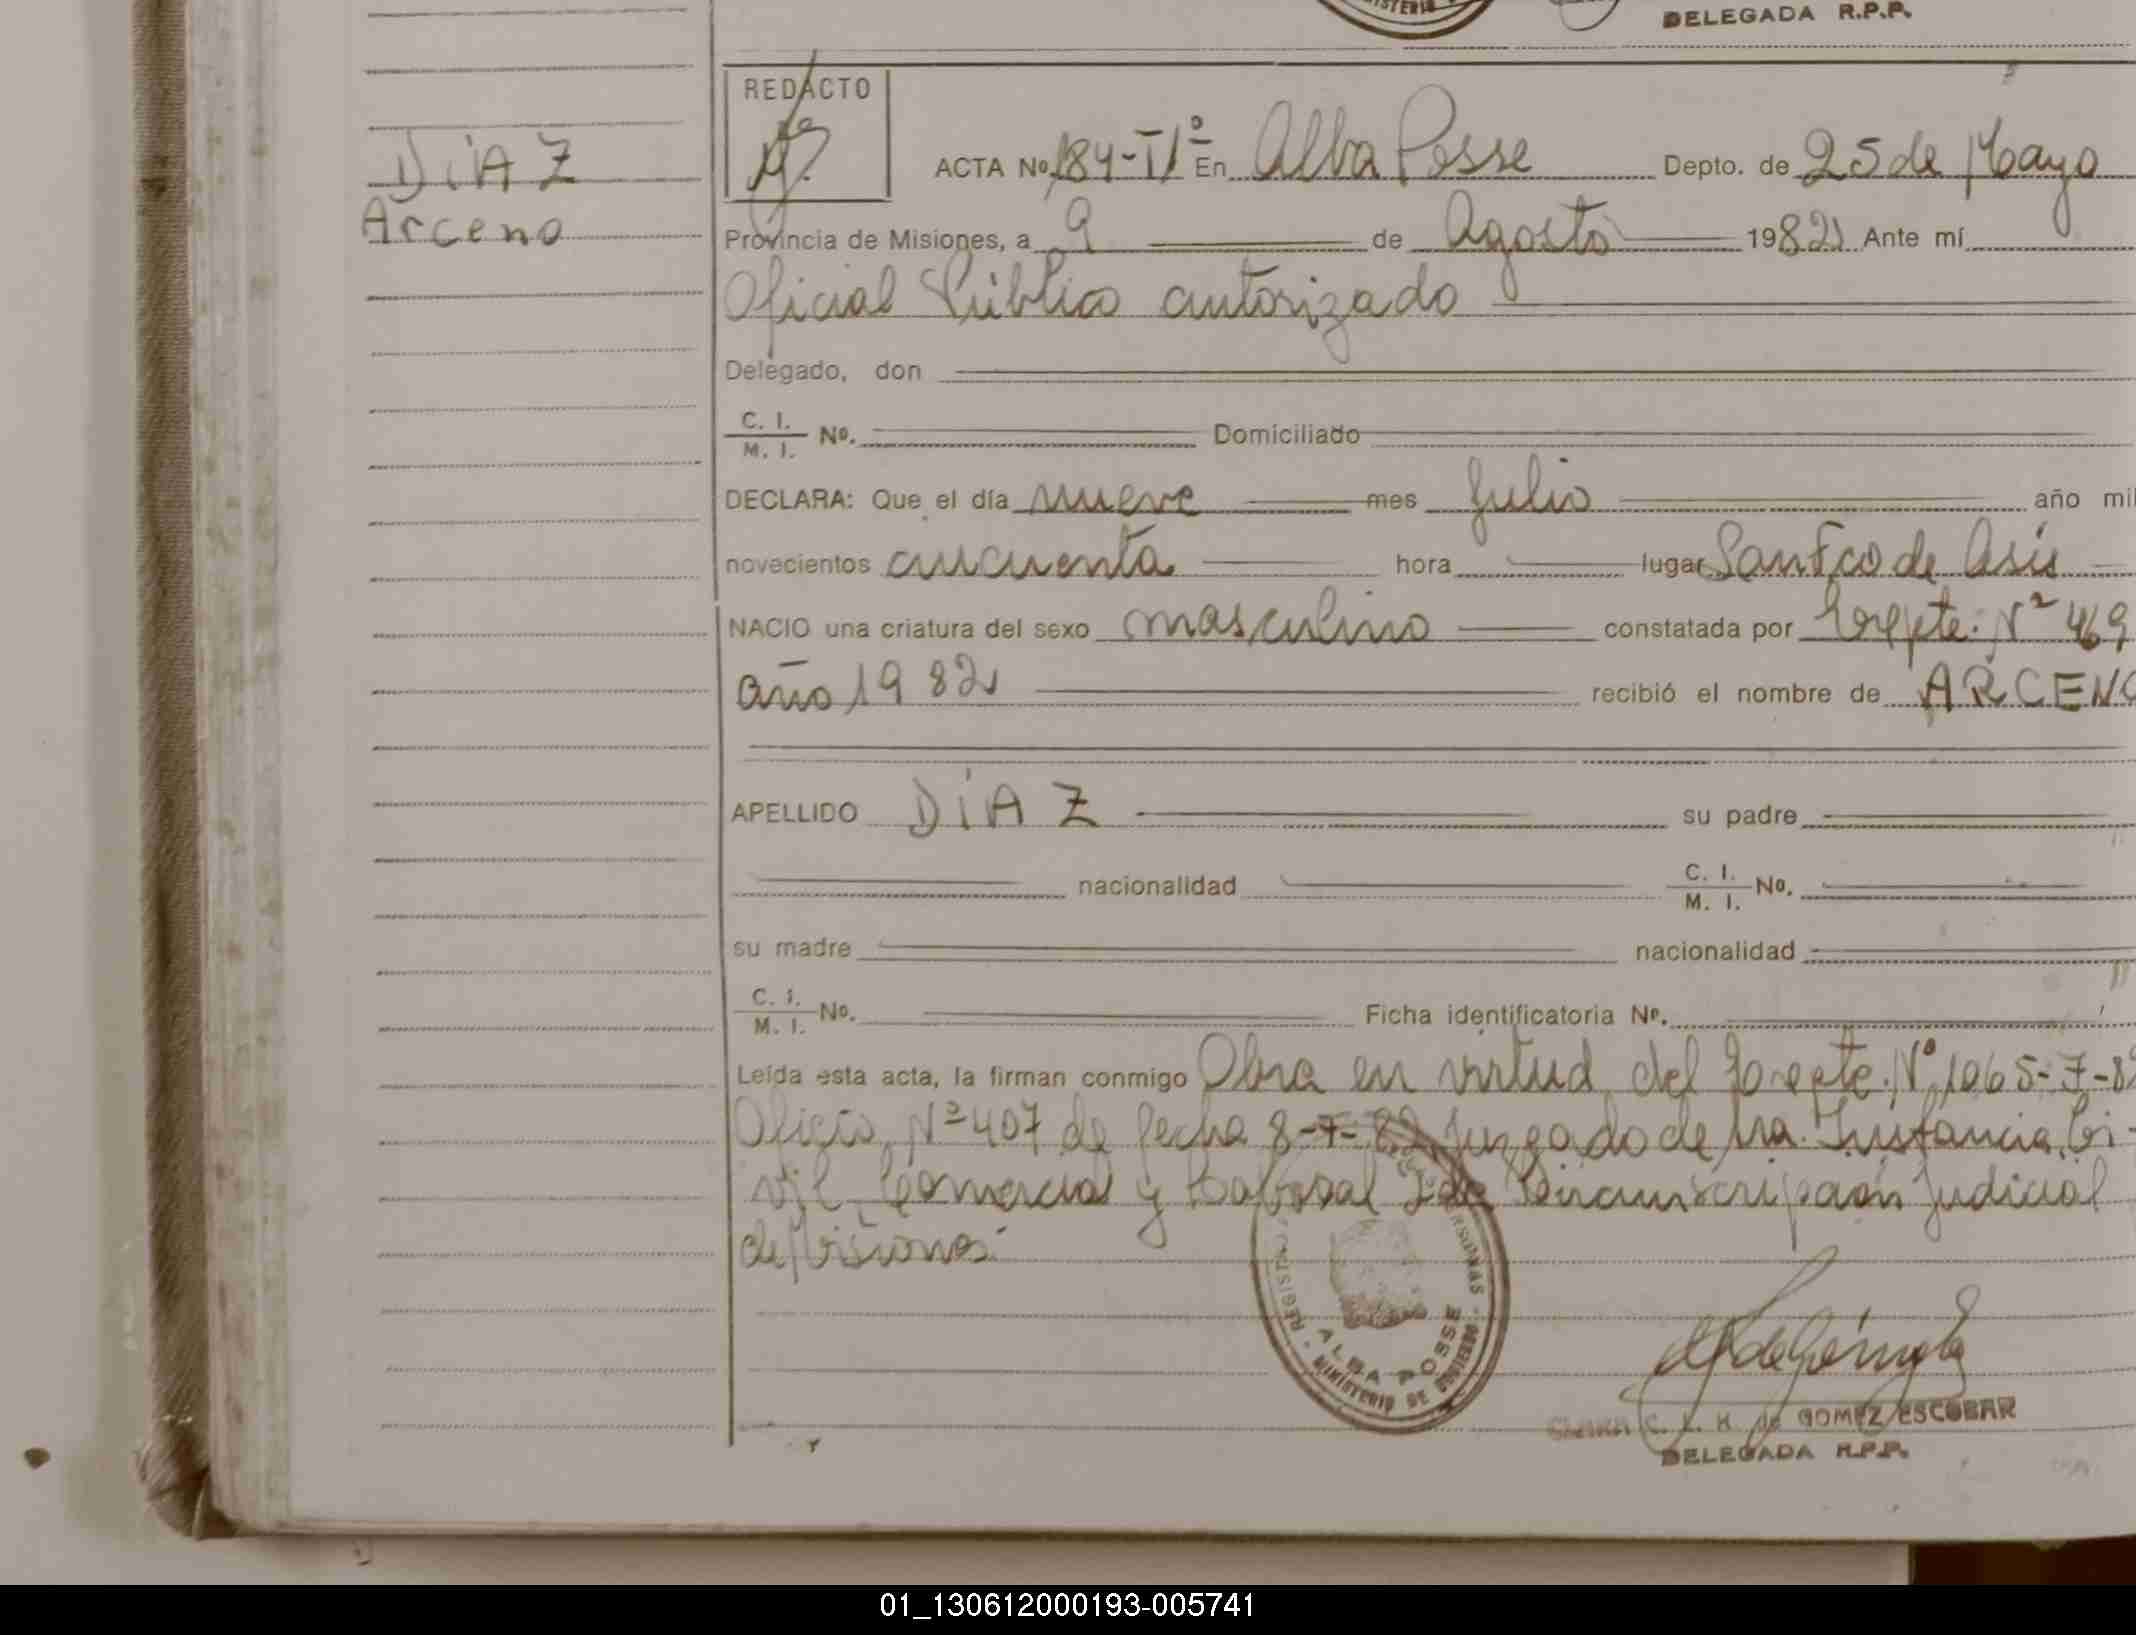 MINISTERIO
DELEGADA R.P.P.
REDACTO
DÍAZ
Arceno
ACTA Nº 184-Tº1º En Alba Posse Depto. de 25 de Mayo
Provincia de Misiones, a 9 de Agosto 1982 Ante mí
Oficial Público autorizado
Delegado, don
C. I.
M. I. Nº. Domiciliado
DECLARA: Que el día nueve mes Julio año mil
novecientos cincuenta hora lugar San Fco de Asís
NACIO una criatura del sexo masculino constatada por Expte. Nº 469
año 1982 recibió el nombre de ARCENO
APELLIDO DÍAZ su padre
nacionalidad C. I.
M. I. Nº.
su madre nacionalidad
C. I.
M. I. Nº. Ficha identificatoria Nº.
Leída esta acta, la firman conmigo Obra en virtud del Expte. Nº 1065-7-82
Oficio Nº 407 de fecha 8-7-82 Juzgado de 1ra. Instancia Ci-
vil Comercial y Laboral 2da Circunscripción Judicial
de Misiones.
ALBA POSSE
MINISTERIO DE GOBIERNO
C. L. H. de GOMEZ ESCOBAR
DELEGADA R.P.P.
01_130612000193-005741